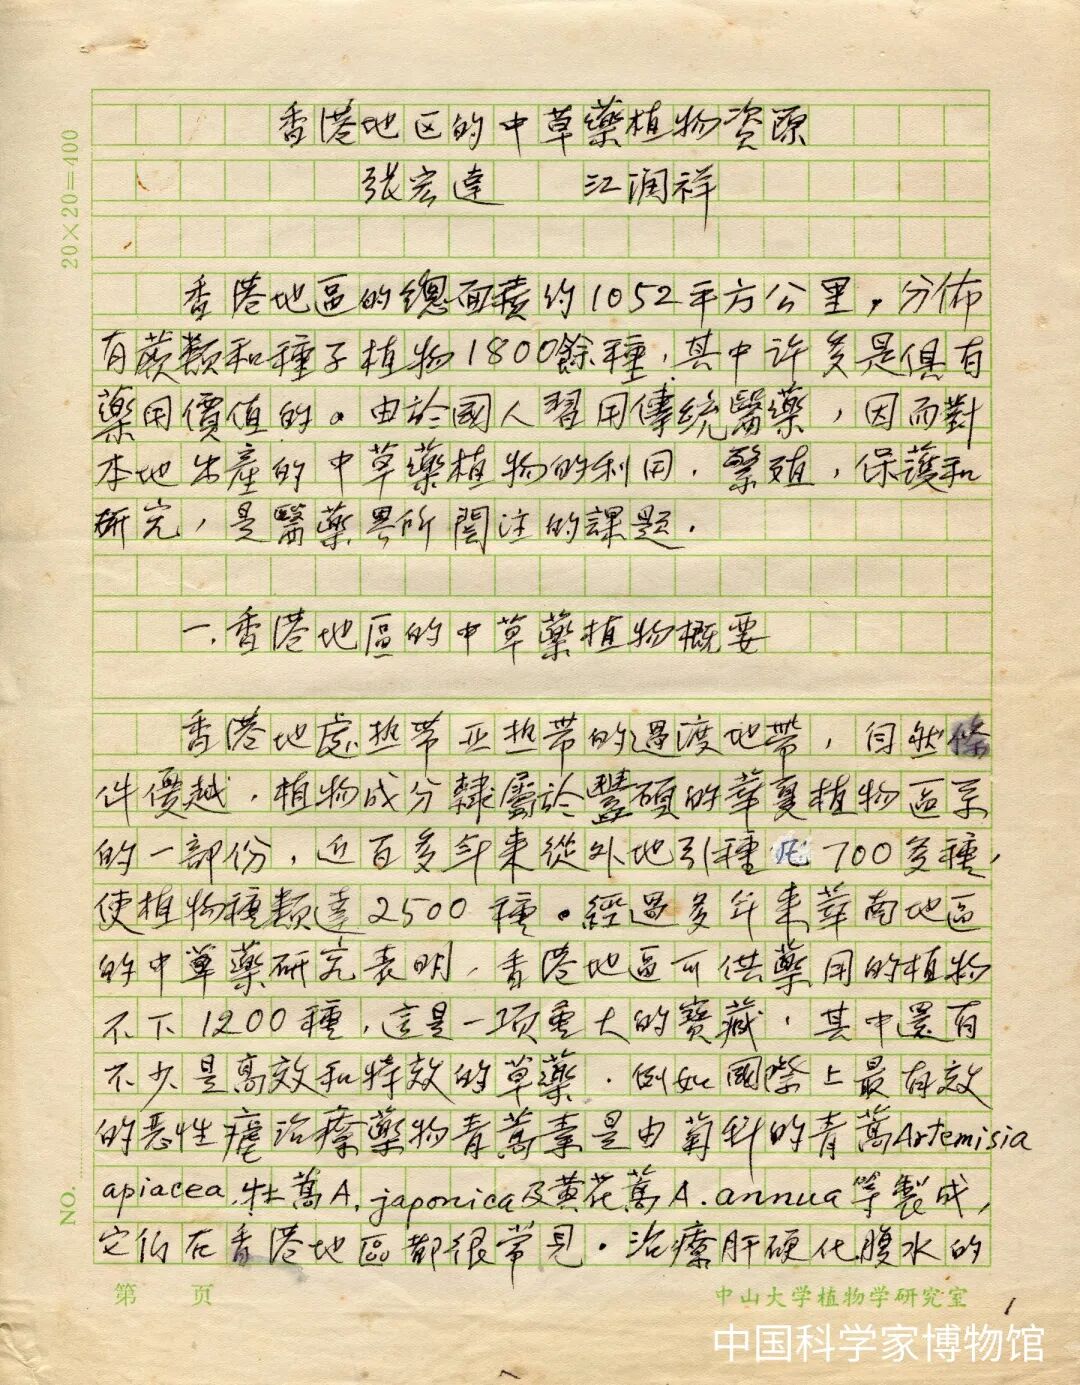 香港地区的中草藥植物資源
张宏達 江润祥
20×20=400
香港地區的總面積约1052平方公里，分佈
有蕨類和種子植物1800餘種，其中许多是俱有
藥用價值的。由於國人習用傳統醫藥，因而對
本地出產的中草藥植物的利用．繁殖，保護和
研究，是醫藥界所関注的課題．
一．香港地區的中草藥植物概要
香港地處热带亚热带的過渡地帶，自然條
件優越．植物成分隸屬於豐碩的華夏植物區系
的一部份，近百多年来從外地引種 700多種，
使植物種類達2500種。經過多年来華南地區
的中草藥研究表明，香港地區可供藥用的植物
不下1200種，這是一项重大的寶藏．其中還有
不少是高效和特效的草藥．例如國際上最有效
的恶性瘧治療藥物青蒿素是由菊科的青蒿Artemisia
apiacea，牡蒿A. japonica及黄花蒿A. annua等製成，
它们在香港地區都很常見．治療肝硬化腹水的
NO.
第 页
中山大学植物学研究室
1
中国科学家博物馆